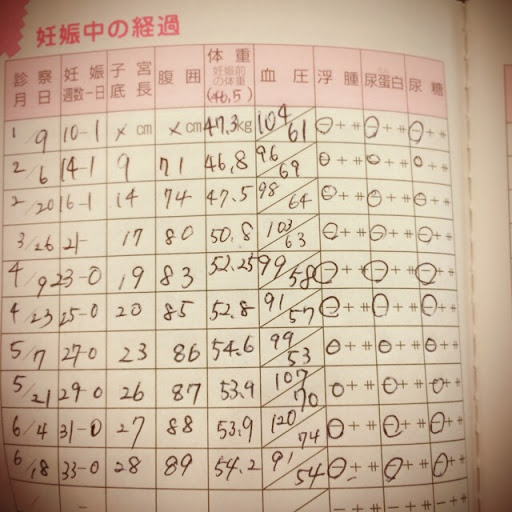 妊娠中の経過
診察月日 妊娠週数-日 子宮底長 腹囲 体重 妊娠前の体重 (46.5) 血圧 浮腫 尿蛋白 尿糖
1/9 10-1 × cm × cm 47.3kg 104/61 - + ⧺ - + ⧺ - + ⧺
2/6 14-1 9 71 46.8 96/69 - + ⧺ - + ⧺ - + ⧺
2/20 16-1 14 74 47.5 98/64 - + ⧺ - + ⧺ - + ⧺
3/26 21- 17 80 50.8 103/63 - + ⧺ - + ⧺ - + ⧺
4/9 23-0 19 83 52.25 99/58 - + ⧺ - + ⧺ - + ⧺
4/23 25-0 20 85 52.8 91/57 - + ⧺ - + ⧺ - + ⧺
5/7 27-0 23 86 54.6 99/53 - + ⧺ - + ⧺ - + ⧺
5/21 29-0 26 87 53.9 107/70 - + ⧺ - + ⧺ - + ⧺
6/4 31-0 27 88 53.9 120/74 - + ⧺ - + ⧺ - + ⧺
6/18 33-0 28 89 54.2 91/54 - + ⧺ - + ⧺ - + ⧺
/ - / - + ⧺ - + ⧺ - + ⧺